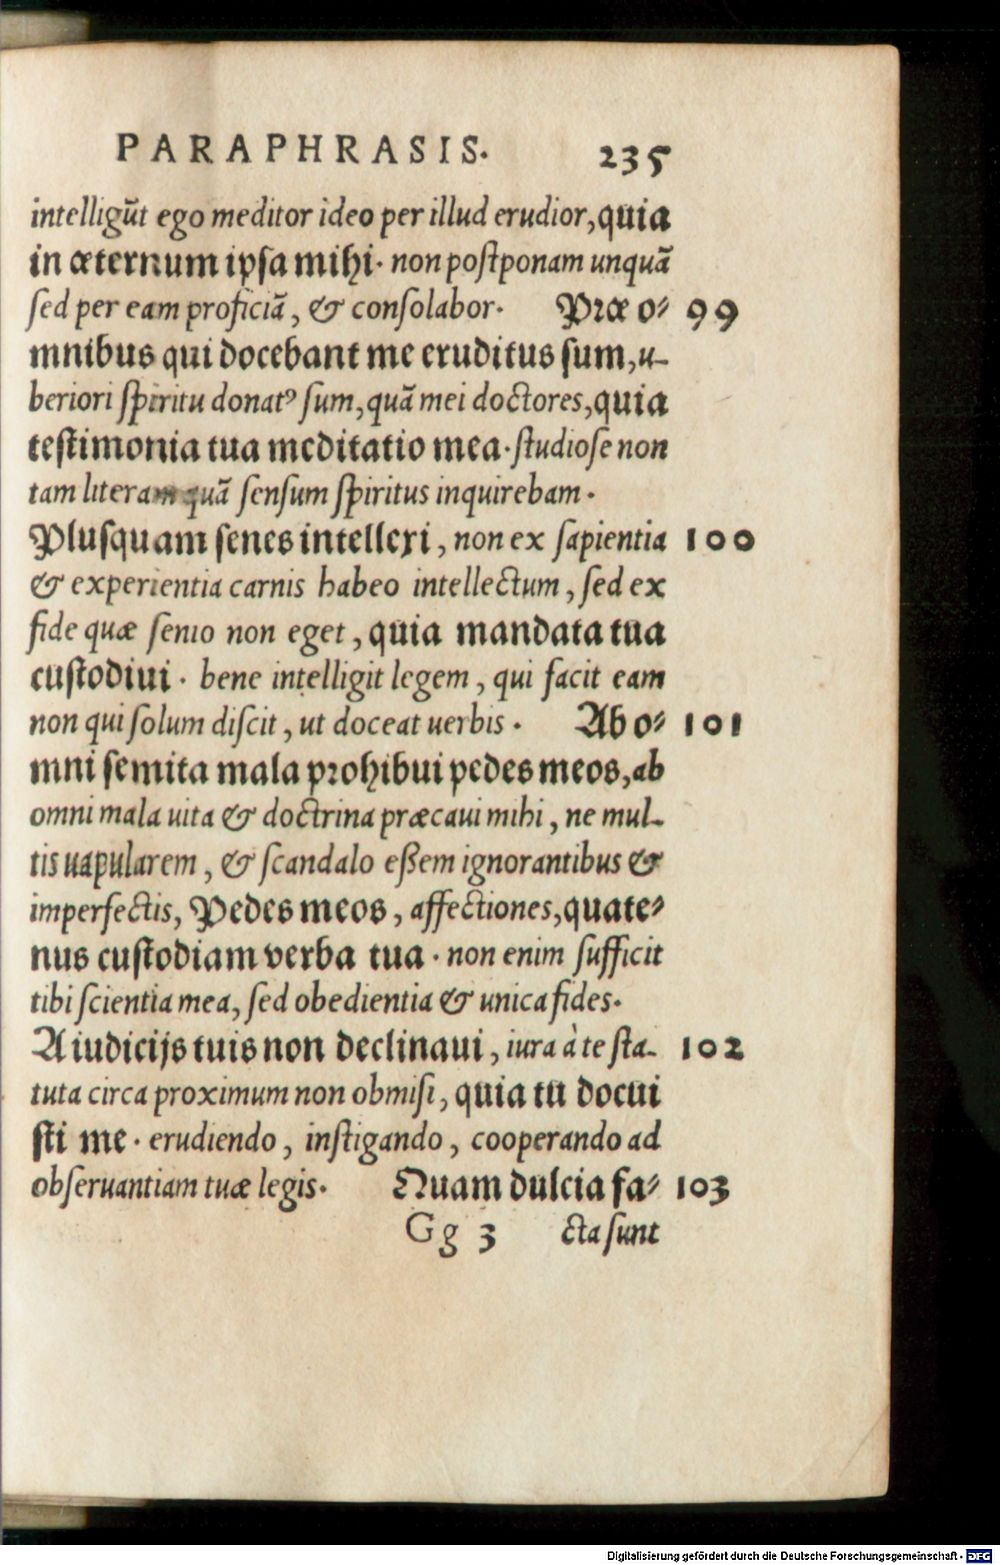 PARAPHRASIS. 235
intelligūt ego meditor ideo per illud erudior, quia
in æternum ipsa mihi. non postponam unquā
sed per eam proficiā, & consolabor. Præ o⸗ 99
mnibus qui docebant me eruditus sum, u-
beriori spiritu donatꝰ sum, quā mei doctores, quia
testimonia tua meditatio mea. studiose non
tam literam quā sensum spiritus inquirebam.
Plusquam senes intellexi, non ex sapientia 100
& experientia carnis habeo intellectum, sed ex
fide quæ senio non eget, quia mandata tua
custodiui. bene intelligit legem, qui facit eam
non qui solum discit, ut doceat uerbis. Ab o⸗ 101
mni semita mala prohibui pedes meos, ab
omni mala uita & doctrina præcaui mihi, ne mul-
tis uapularem, & scandalo eßem ignorantibus &
imperfectis, Pedes meos, affectiones, quate⸗
nus custodiam verba tua. non enim sufficit
tibi scientia mea, sed obedientia & unica fides.
A iudicijs tuis non declinaui, iura à te sta- 102
tuta circa proximum non obmisi, quia tu docui
sti me. erudiendo, instigando, cooperando ad
obseruantiam tuæ legis. Quam dulcia fa⸗ 103
Gg 3 cta sunt
Digitalisierung gefördert durch die Deutsche Forschungsgemeinschaft - DFG